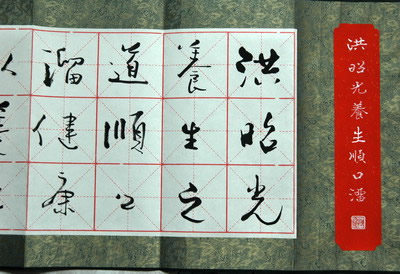 洪昭光養生順口溜
洪昭光
養生之
道順口
溜健康